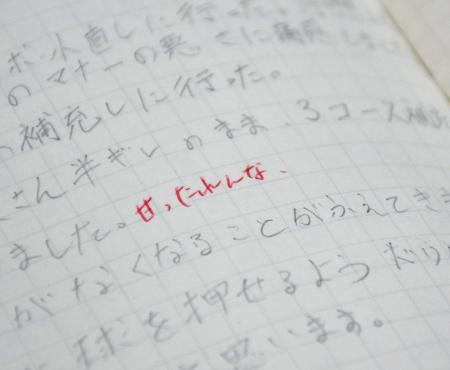 ボット直しに行った。
のマナーの悪さに
補充しに行った。
さん半ギレのまま、3コース
ました。せったれんな.
がなくなることがふえてきま
球を押せるよう
思います。